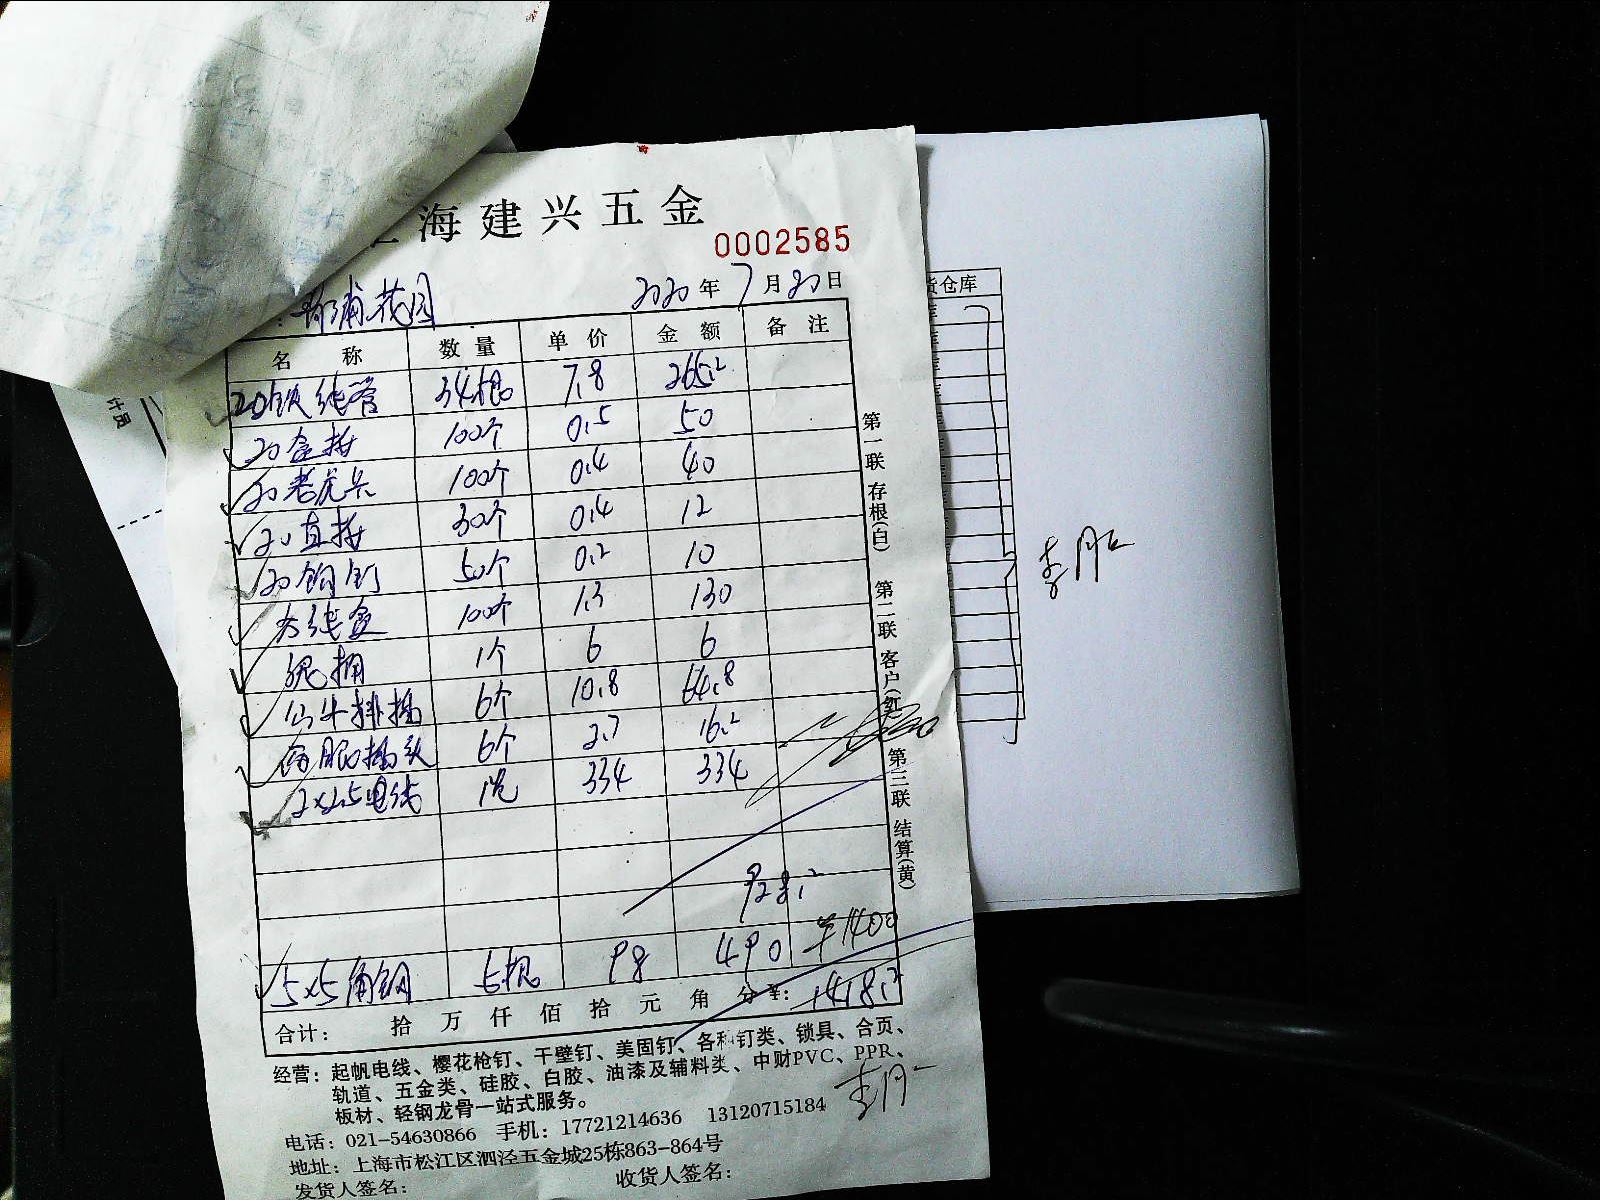 海建兴五金
0002585
花园 2020年7月20日
名称 数量 单价 金额 备注
20铁线管 34根 7.8 265.2
20盒接 100个 0.5 50
20老虎卡 100个 0.4 40
20直接 30个 0.4 12
20钩钉 50个 0.2 10
方线盒 100个 1.3 130
1个 6 6
公牛排插 6个 10.8 64.8
插头 6个 2.7 16.2
2×2.5电线 1卷 334 334
928.2
¥1400
5×5角钢 5根 98 490
合计: 拾万仟佰拾元角分¥: 1418.2
经营: 起帆电线、樱花枪钉、干壁钉、美固钉、各种钉类、锁具、合页、
轨道、五金类、硅胶、白胶、油漆及辅料类、中财PVC、PPR、
板材、轻钢龙骨一站式服务。
电话: 021-54630866 手机: 17721214636 13120715184
地址: 上海市松江区泗泾五金城25栋863-864号
发货人签名: 收货人签名:
第一联 存根(白)
第二联 客户(红)
第三联 结算(黄)
货仓库
计员